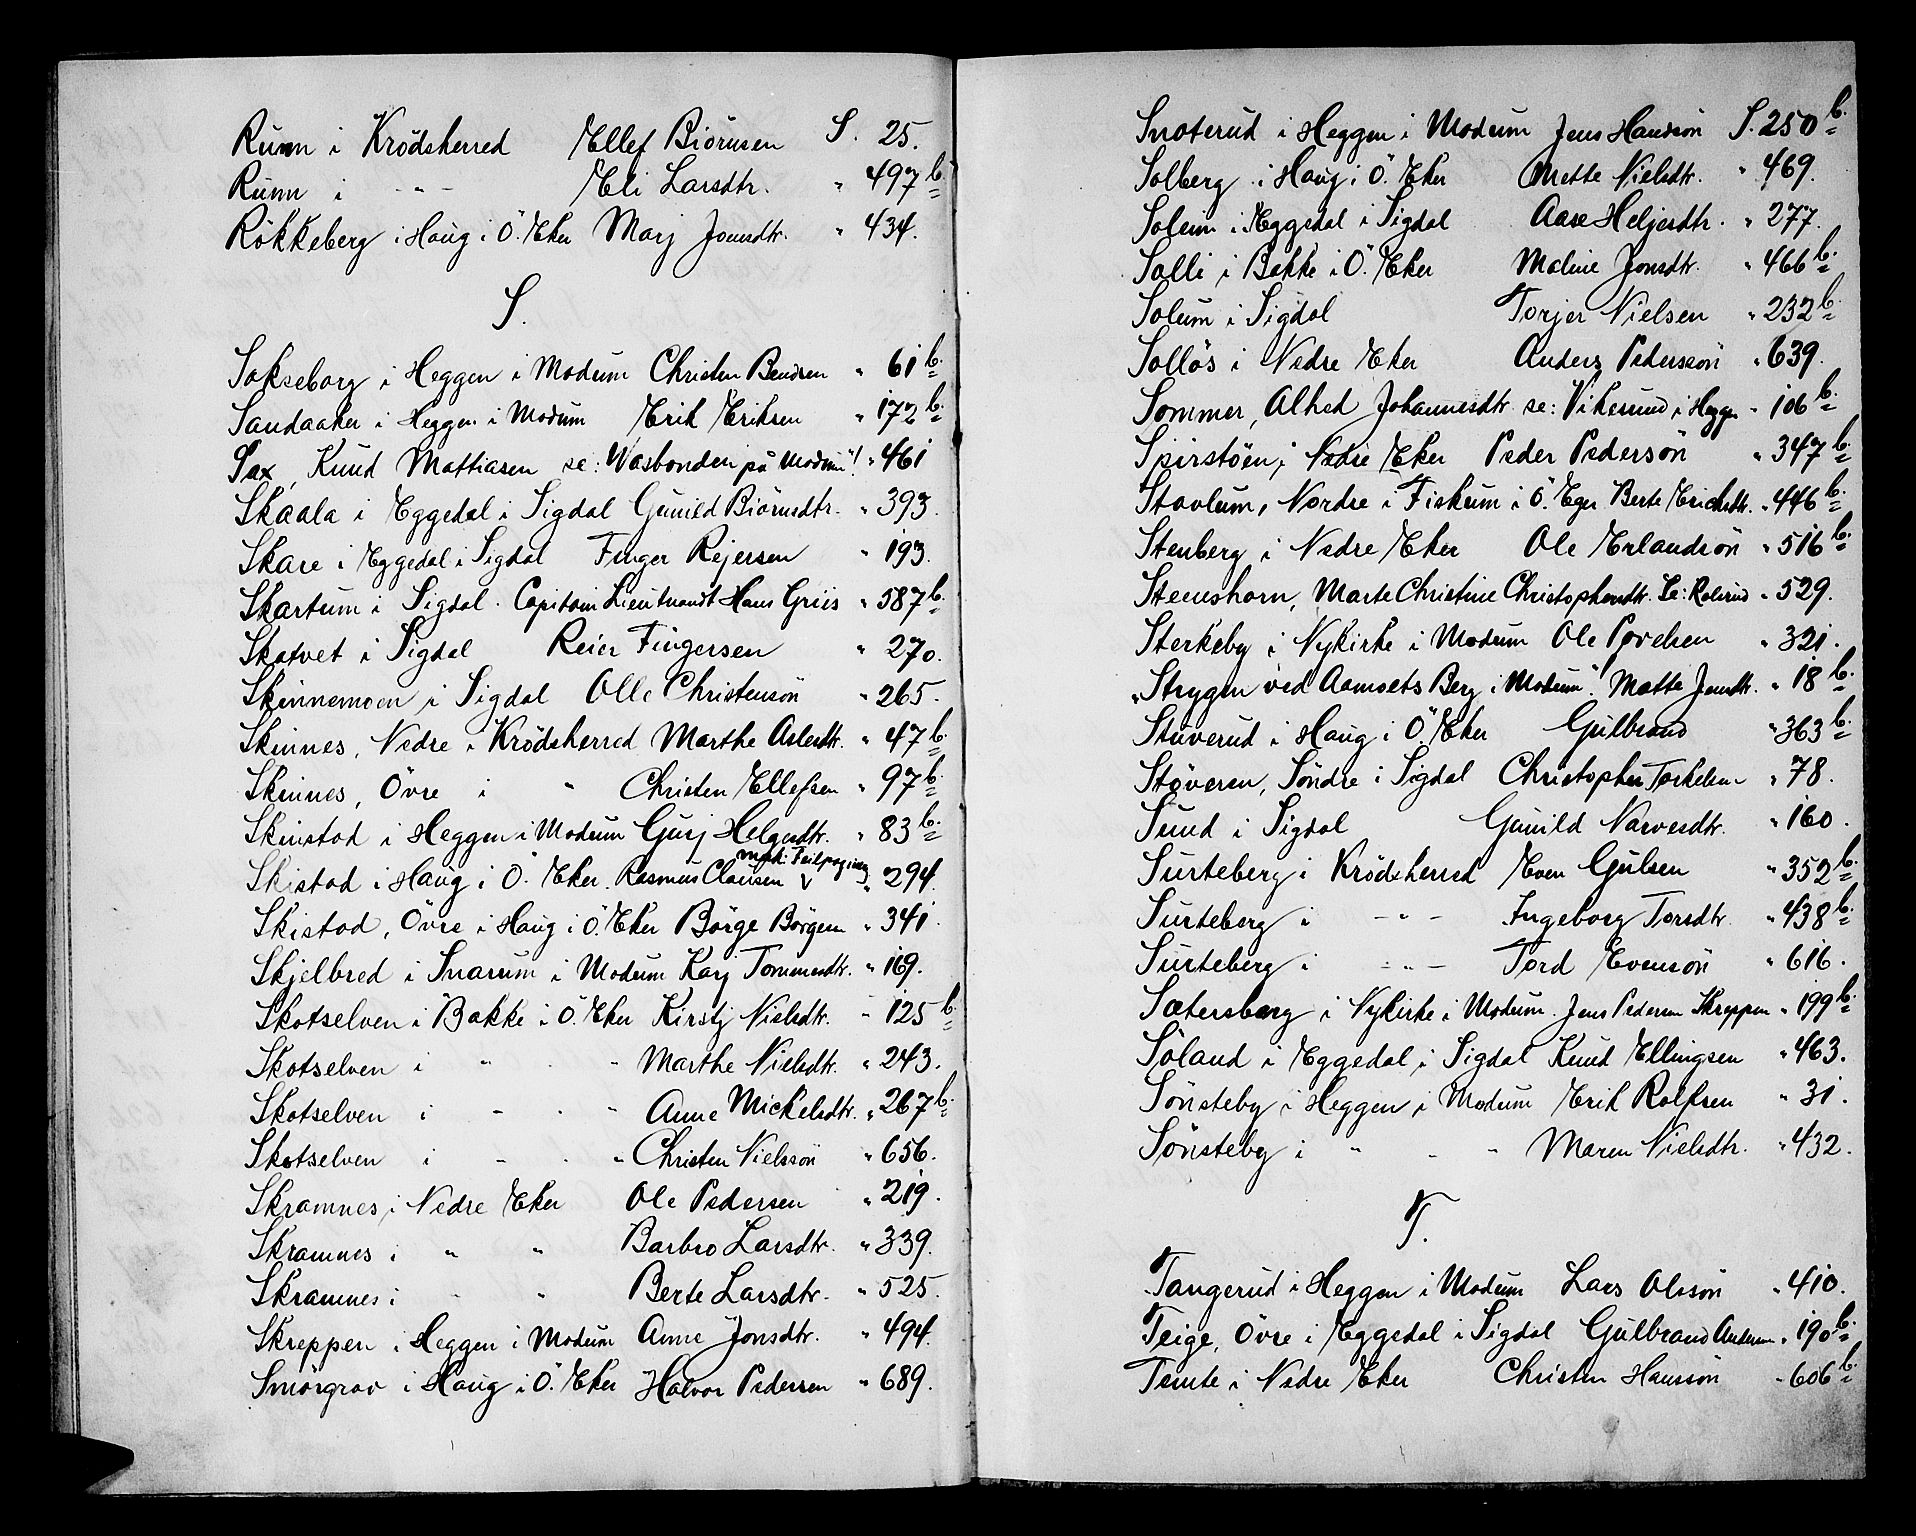 Runn i Krödsherred Ellef Biörnsen S. 25.
Runn i - " - Eli Larsdtr. " 497 b.
Rökkeberg i Haug i Ö. Eker Marj Jonsdtr. " 434.
S.
Sakseborg i Heggen i Modum Christen Bendsen " 61 b.
Sandaaker i Heggen i Modum Erik Eriksen " 172 b.
Sax, Knud Mattiasen se: Wasbonden på Modum"! " 461
Skaala i Eggedal i Sigdal Gunild Biörnsdtr. " 393.
Skare i Eggedal i Sigdal Finger Rejersen " 193.
Skartum i Sigdal. Capitain Lieutnandt Hans Griis " 587 b.
Skatvet i Sigdal Reier Fingersen " 270.
Skinnemoen i Sigdal Olle Christensön " 265.
Skinnes, Nedre i Krödsherred Marthe Aslesdtr. " 47 b.
Skinnes, Övre i " Christen Ellefsen " 97 b.
Skinstad i Heggen i Modum Gurj Helgesdtr. " 83 b.
Skistad i Haug i Ö. Eker. Rasmus Clausen mrk: Feilpaging " 294.
Skistad, Övre i Haug i Ö. Eker Börge Börgesen " 341.
Skjelbred i Snarum i Modum Karj Tommesdtr. " 169.
Skotselven i Bakke i Ö. Eker Kirstj Nielsdtr. " 125 b.
Skotselven i " - " Marthe Nielsdtr. " 243.
Skotselven i - - " Anne Mickelsdtr. " 267 b.
Skotselven i - - " Christen Nielssön " 656.
Skramnes i Nedre Eker Ole Pedersen " 219.
Skramnes i " " Barbro Larsdtr. " 339.
Skramnes i - " Berte Larsdtr. " 525.
Skreppen i Heggen i Modum Anne Jonsdtr. " 494.
Smörgrav i Haug i Ö. Eker Halvor Pedersen " 689.
Snoterud i Heggen i Modum Jens Hanssön S. 250 b.
Solberg i Haug i Ö. Eker Mette Nielsdtr. " 469.
Soleim i Eggedal i Sigdal Aase Heljesdtr. " 277.
Solli i Bakke i Ö. Eker Maline Jonsdtr. " 466 b.
Solum i Sigdal Torjer Nielsen " 232 b.
Sollös i Nedre Eker Anders Pederssön " 639.
Sommer, Alhed Johannesdtr se: Vikesund i Heggen " 106 b.
Spirstöen i Nedre Eker Peder Pedersön " 347 b.
Stavlum, Nordre i Fiskum i Ö. Eger Berte Erichsdtr. " 446 b.
Stenberg i Nedre Eker Ole Erlandsön " 516 b.
Steenshorn, Marte Christine Christophersdtr. Se: Rolsrud " 529.
Sterkeby i Nykirke i Modum Ole Povelsen " 321.
"Strygen ved Aamoets Berg i Modum"! Matte Jensdtr. " 18 b.
Stuverud i Haug i Ö. Eker Gulbrand " 363 b.
Stöveren, Söndre i Sigdal Christopher Torkelsen " 78.
Sund i Sigdal Gunild Narvesdtr. " 160.
Surteberg i Krödsherred Even Gulsen " 352 b.
Surteberg i - " - Ingeborg Torsdtr. " 438 b.
Surteberg i - " - Tord Evensön " 616.
Sætersberg i Nykirke i Modum. Jens Pedersen Skreppen " 199 b.
Söland i Eggedal i Sigdal Knud Ellingsen " 463.
Sönsteby i Heggen i Modum Erik Rolfsen " 31.
Sönsteby i " - " Maren Nielsdtr. " 432.
T.
Tangerud i Heggen i Modum Lars Olssön " 410.
Teige, Övre i Eggedal i Sigdal Gulbrand Andersen " 190 b.
Temte i Nedre Eker Christen Hanssön " 606 b.